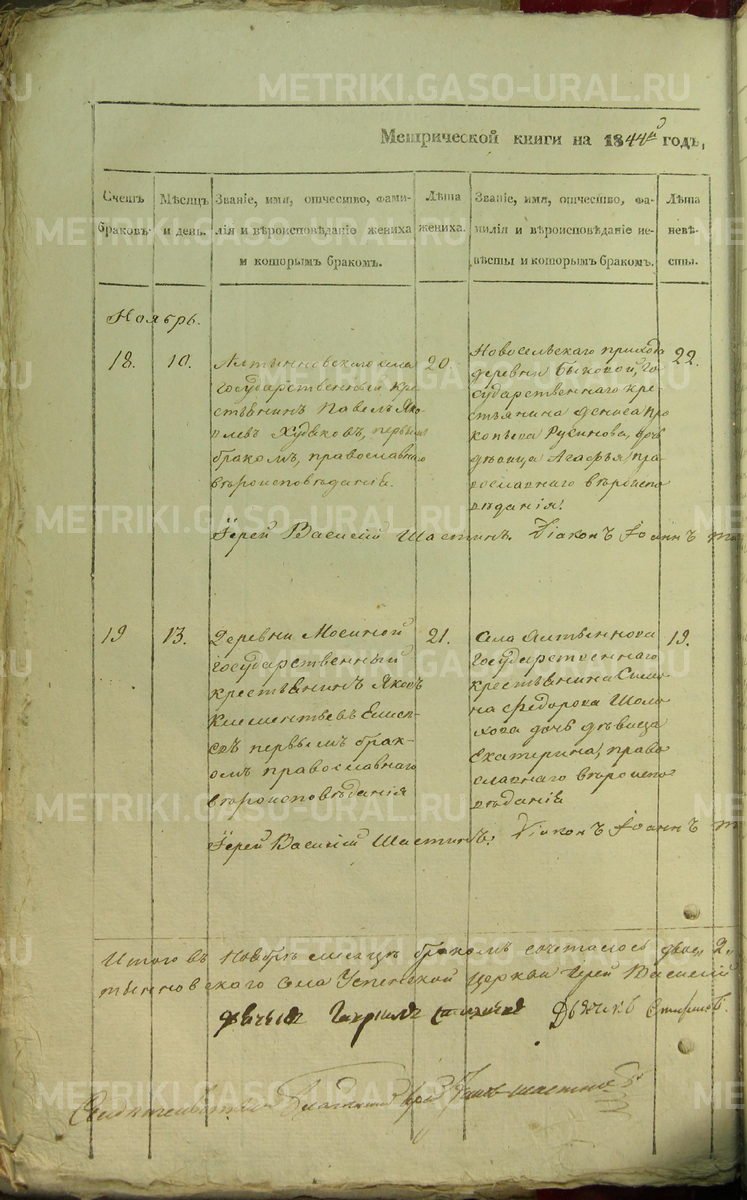 METRIKI.GASO-URAL.RU
Метрической книги на 1844й годъ,
Счетъ браковъ.
Мѣсяцъ и день.
Званіе, имя, отчество, фами-
лія и вѣроисповѣданіе жениха
и которымъ бракомъ.
Лѣта
жениха.
Званіе, имя, отчество, фа-
милія и вѣроисповѣданіе не-
вѣсты и которымъ бракомъ.
Лѣта
невѣ-
сты.
Ноябрь.
18.
10.
Алтынновскаго села
государственный кре-
стьянинъ Павелъ Яко-
влевъ Худяковъ, первымъ
бракомъ, православнаго
вѣроисповѣданія.
20.
Новосельскаго прихода
деревни Быковой, го-
сударственнаго кре-
стьянина Дениса Про
копьева Русинова, дочь
дѣвица Агафья, пра-
вославнаго вѣроиспо
вѣданія.
22.
Іерей Василій Шастинъ. Діаконъ Іоаннъ
19
13.
Деревни Мосиной
государственный
крестьянинъ Яковъ
Клементьевъ
первымъ брак-
омъ православнаго
вѣроисповѣданія
21.
Села Алтыннова
государственнаго
крестьянина
Федорова
дочь дѣвица
Екатерина, право
славнаго вѣроиспо
вѣданія
19.
Іерей Василій Шастинъ. Діаконъ Іоаннъ
Итого въ Ноябрѣ месяцѣ бракомъ сочеталось двое 2.
тынновскаго села Успенской церкви Іерей Василій
Гаврилъ Дьячикъ
Свидѣтельствовалъ Благочинный